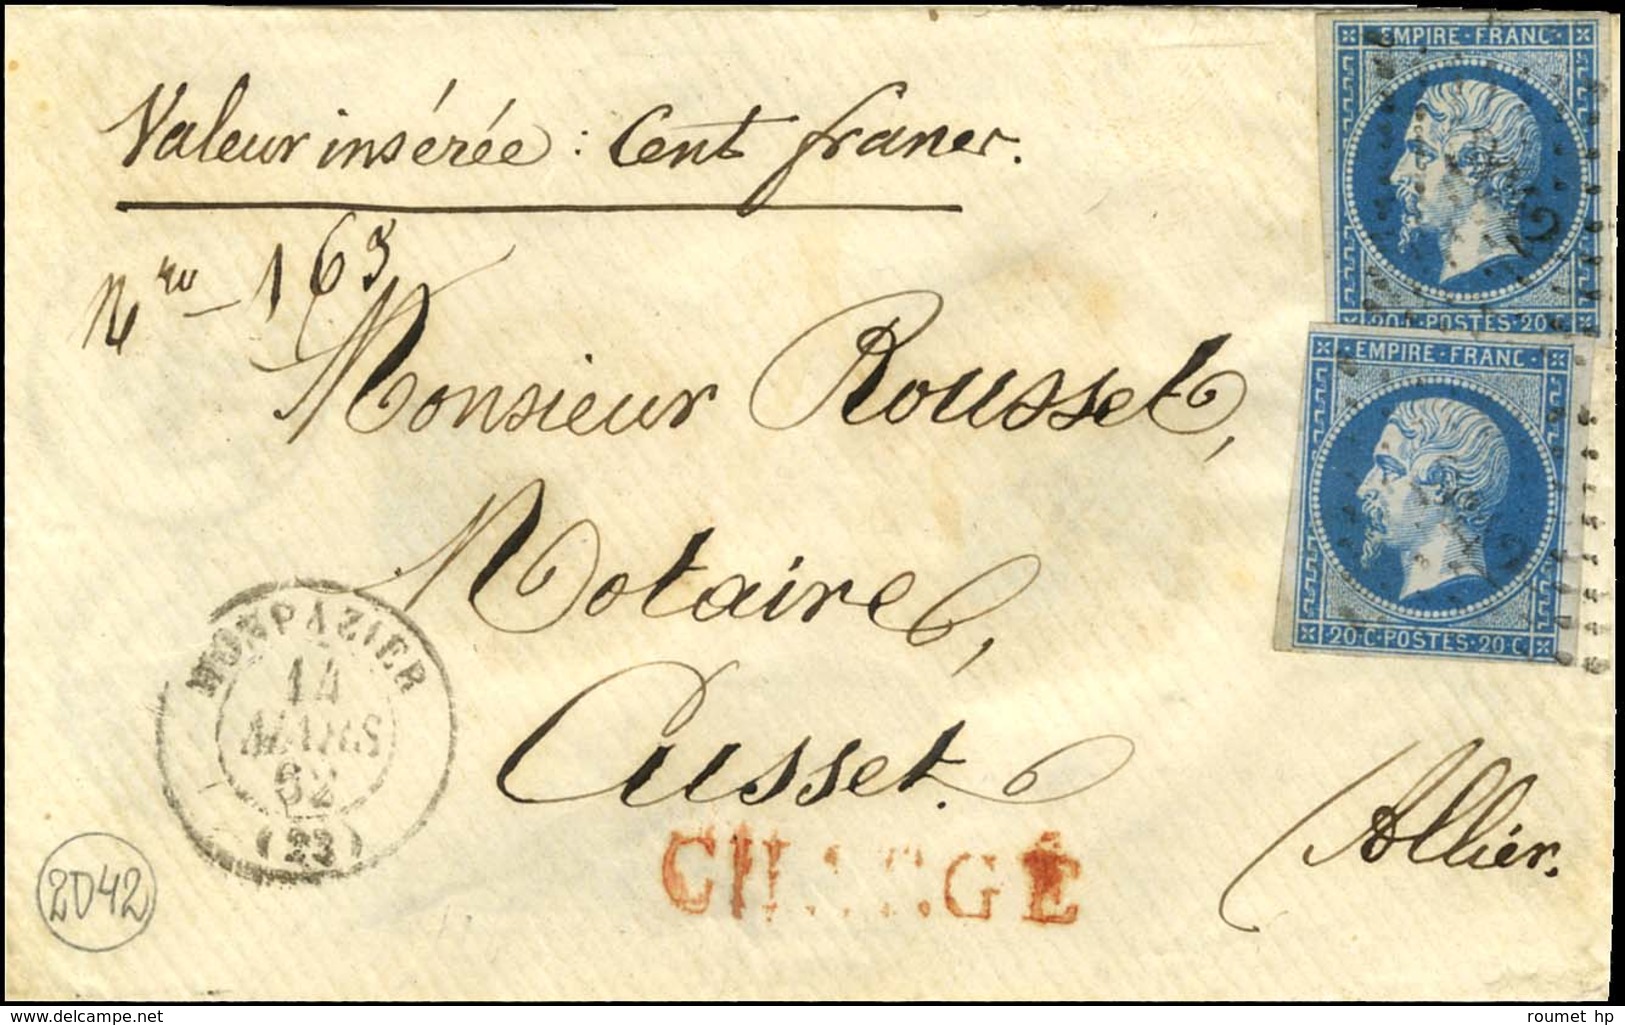 Valeur insérée : Cent francs.
Nro 163
Monsieur Rousset,
Notaire,
Cusset.
(Allier.
CHARGÉ
MONPAZIER
14
MARS
62
(23)
2042
EMPIRE · FRANC ·
20 · C · POSTES · 20 · C
EMPIRE · FRANC ·
20 · C · POSTES · 20 · C
www.delcampe.net
roumet hp